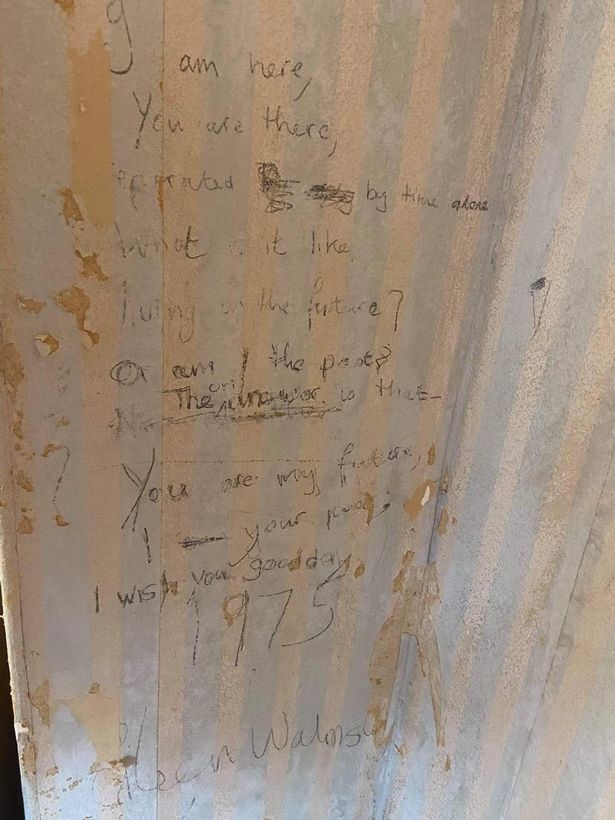 I am here,
You are there,
separated by time alone
What is it like
living in the future?
Or am I the past?
The only answer is that—
You are my future,
I your past;
I wish you goodday,
1975
Eileen Walms